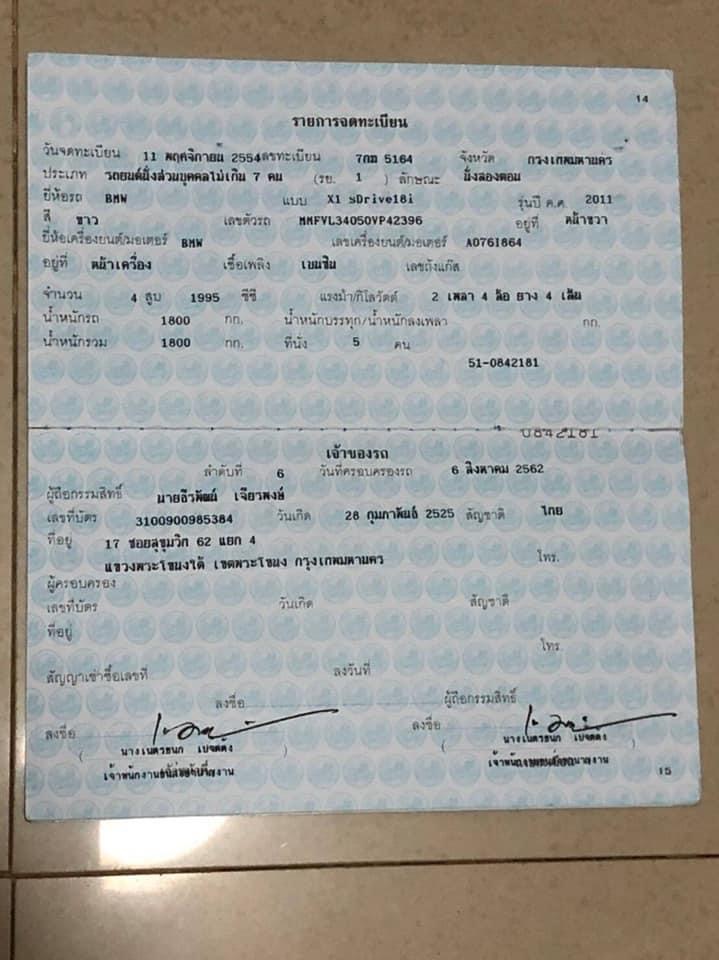 14
รายการจดทะเบียน
วันจดทะเบียน 11 พฤศจิกายน 2554 เลขทะเบียน 7กฆ 5164 จังหวัด กรุงเทพมหานคร
ประเภท รถยนต์นั่งส่วนบุคคลไม่เกิน 7 คน (รย. 1 ) ลักษณะ นั่งสองตอน
ยี่ห้อรถ BMW แบบ X1 sDrive18i รุ่นปี ค.ศ. 2011
สี ขาว เลขตัวรถ MMFVL34050VP42396 อยู่ที่ หน้าขวา
ยี่ห้อเครื่องยนต์/มอเตอร์ BMW เลขเครื่องยนต์/มอเตอร์ A0761864
อยู่ที่ หน้าเครื่อง เชื้อเพลิง เบนซิน เลขถังแก๊ส
จำนวน 4 สูบ 1995 ซีซี แรงม้า/กิโลวัตต์ 2 เพลา 4 ล้อ ยาง 4 เส้น
น้ำหนักรถ 1800 กก. น้ำหนักบรรทุก/น้ำหนักลงเพลา กก.
น้ำหนักรวม 1800 กก. ที่นั่ง 5 คน
51-0842181
0842181
เจ้าของรถ
ลำดับที่ 6 วันที่ครอบครองรถ 6 สิงหาคม 2562
ผู้ถือกรรมสิทธิ์ นายธีรพัฒน์ เจียรพงษ์
เลขที่บัตร 3100900985384 วันเกิด 28 กุมภาพันธ์ 2525 สัญชาติ ไทย
ที่อยู่ 17 ซอยสุขุมวิท 62 แยก 4
แขวงพระโขนงใต้ เขตพระโขนง กรุงเทพมหานคร โทร.
ผู้ครอบครอง
เลขที่บัตร วันเกิด สัญชาติ
ที่อยู่
โทร.
สัญญาเช่าซื้อเลขที่ ลงวันที่
ลงชื่อ ผู้ถือกรรมสิทธิ์
ลงชื่อ ลงชื่อ
( นางเนตรชนก ) ( นางเนตรชนก )
เจ้าพนักงาน เจ้าพนักงาน
15